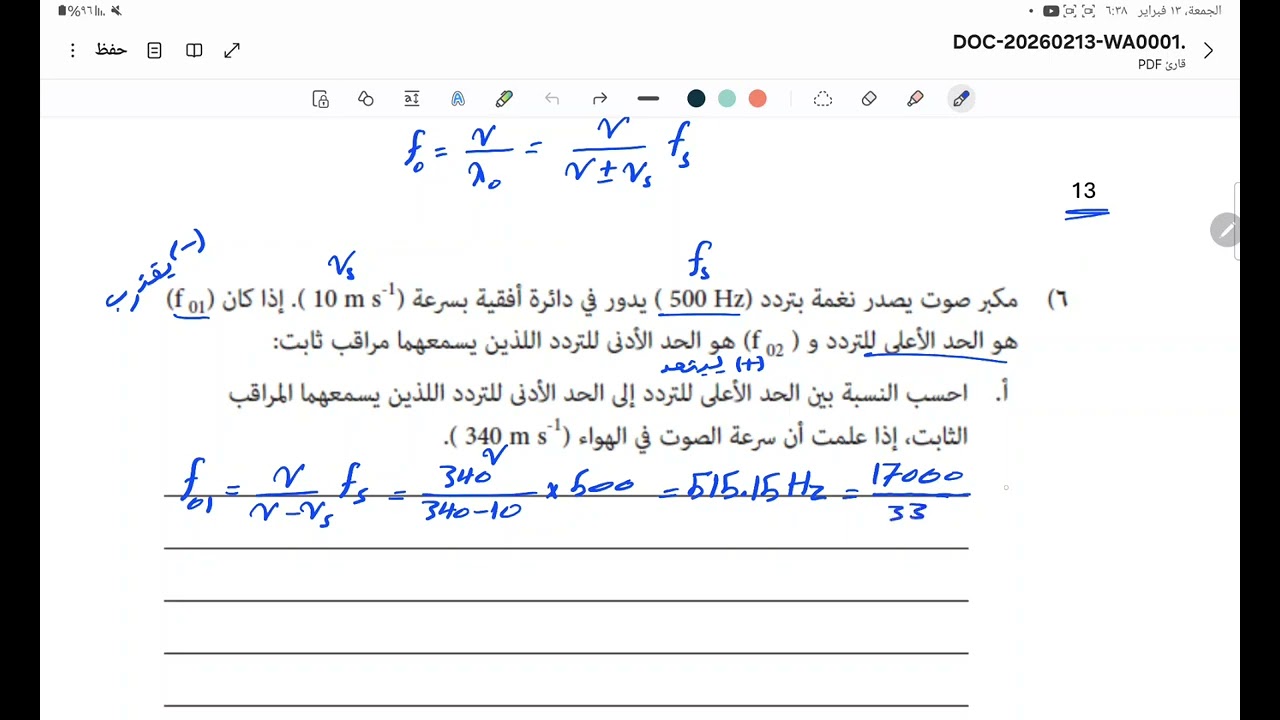 الجمعة، ١٣ فبراير ٦:٣٨
٩٦%
DOC-20260213-WA0001.
قارئ PDF
حفظ
f₀ = v/λ₀ = v/(v ± vₛ) fₛ
13
(−) يقترب
vₛ
fₛ
٦) مكبر صوت يصدر نغمة بتردد (500 Hz) يدور في دائرة أفقية بسرعة (10 m s⁻¹). إذا كان (f 01)
هو الحد الأعلى للتردد و (f 02) هو الحد الأدنى للتردد اللذين يسمعهما مراقب ثابت:
(+)
أ. احسب النسبة بين الحد الأعلى للتردد إلى الحد الأدنى للتردد اللذين يسمعهما المراقب
الثابت، إذا علمت أن سرعة الصوت في الهواء (340 m s⁻¹).
v
f₀₁ = v/(v − vₛ) fₛ = 340/(340−10) × 500 = 515.15 Hz = 17000/33